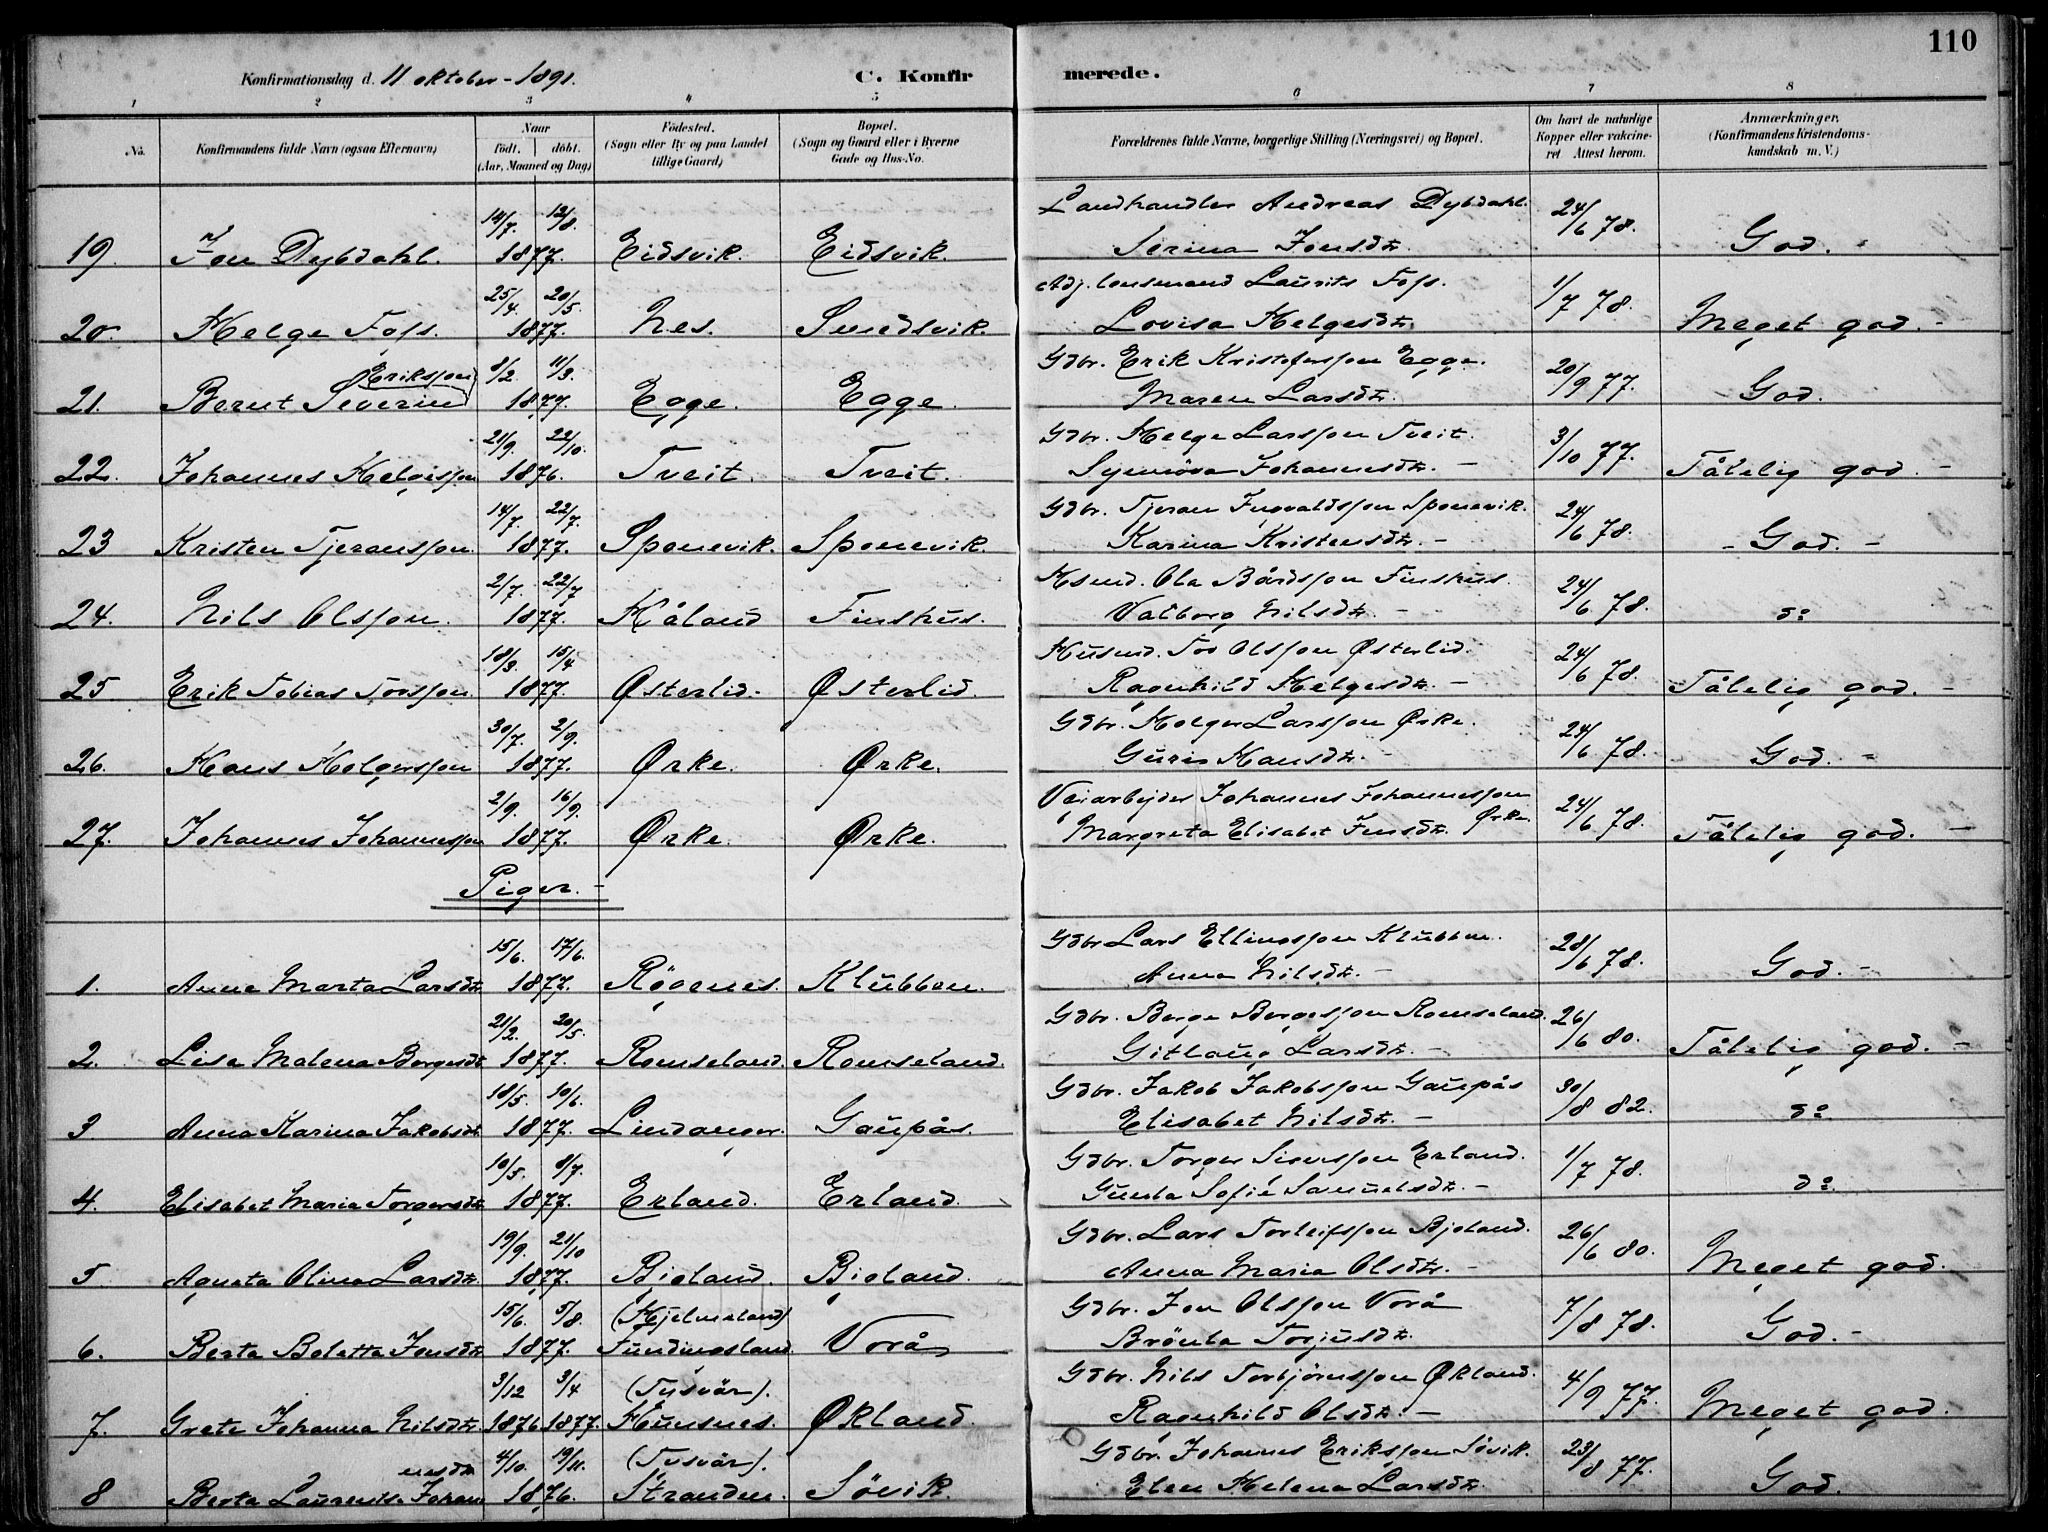 110
Konfirmationsdag d. 11 oktober - 1891.
C. Konfirmerede.
1 2 3 4 5 6 7 8
No.
Konfirmandens fulde Navn (ogsaa Efternavn)
Naar
födt. döbt.
(Aar, Maaned og Dag)
Födested.
(Sogn eller By og paa Landet
tillige Gaard)
Bopæl.
(Sogn og Gaard eller i Byerne
Gade og Hus-No.
Forældrenes fulde Navne, borgerlige Stilling (Næringsvei) og Bopæl.
Om havt de naturlige
Kopper eller vakcine-
ret Attest herom.
Anmærkninger,
(Konfirmandens Kristendoms-
kundskab m. V.)
14/7. 12/8. Landhandler Andreas Dybdahl. 24/6 78.
19. Jon Dybdahl. 1877. Eidsvik. Eidsvik. Serina Jonsdtr. God. -
25/4. 20/5. Adj. lensmand Laurits Foss. 1/7 78.
20. Helge Foss. 1877. Nes. Sundsvik. Lovisa Helgesdtr. Meget god. -
Eriksson 8/2. 11/3. Gdbr. Erik Kristofersson Egge. 20/9 77.
21. Bernt Severin 1877. Egge. Egge. Maren Larsdtr. God.
21/9. 22/10. Gdbr. Helge Larsson Tveit. 3/10 77.
22. Johannes Helgesson 1876. Tveit. Tveit. Synnöva Johannesdtr. - Tålelig god. -
14/7. 22/7. Gdbr. Tjeran Ingvaldsson Sponevik. 24/6 78.
23 Kristen Tjeransson. 1877. Sponevik. Sponevik. Karina Kristensdtr. - - God. -
2/7. 22/7 Hsmd. Ola Bårdsson Finshus. 24/6 78.
24. Nils Olsson. 1877. Håland Finshus. Valborg Nilsdtr. - do
18/3. 15/4 Husmd. Tor Olsson Østerlid. 24/6 78.
25 Erik Tobias Torsson 1877. Østerlid. Østerlid. Ragnhild Helgesdtr. - Tålelig god. -
30/7. 2/9. Gdbr. Holger Larsson Ørke. 24/6 78.
26. Hans Holgersson 1877. Ørke. Ørke. Guri Hansdtr. - God. -
2/9. 16/9. Veiarbejder Johannes Johannesson 24/6 78.
27. Johannes Johannesson 1877. Ørke. Ørke. Margreta Elisabet Jensdtr. Ørke. Tålelig god. -
Piger. -
15/6. 17/6. Gdbr Lars Ellingsson Klubben. 28/6 78.
1. Anna Marta Larsdtr. 1877. Røgenes. Klubben. Anna Nilsdtr. - God. -
21/2. 20/5. Gdbr. Børge Børgesson Romseland. 26/6 80.
2. Lisa Malena Børgesdtr 1877. Romseland. Romseland. Gitlaug Larsdtr. - Tålelig god. -
18/5. 10/6. Gdbr. Jakob Jakobsson Gaupås 30/8 82.
3 Anna Karina Jakobsdtr. 1877. Lindanger. Gaupås. Elisabet Nilsdtr. - do
10/5. 8/7. Gdbr. Torger Siversson Erland. 1/7 78.
4. Elisabet Maria Torgersdtr 1877. Erland. Erland. Gunla Sofie Samuelsdtr. - do
19/9. 21/10 Gdbr. Lars Torleifsson Bjoland. 26/6 80.
5 Agnata Olina Larsdtr. 1877. Bjoland. Bjoland. Anna Maria Olsdtr. - Meget god.
15/6. 5/8. (Hjelmeland) Gdbr. Jon Olsson Vorå 7/8 78.
6. Berta Boletta Jonsdtr 1877. Fundingsland Vorå Brönla Torjusdtr. God. -
3/12 3/4 (Tysvär). Gdbr. Nils Torbjörnsson Økland. 4/9 77.
7. Grete Johanna Nilsdtr. 1876 1877. Hünsnes. Økland. Ragnhild Olsdtr. - Meget god.
nesdtr. 4/10. 19/11. (Tysvär). Gdbr. Johannes Eriksson Sövik. 23/8 77.
8 Berta Laurentse Johan 1876. Stranden. Sövik. Elen Helena Larsdtr. God.